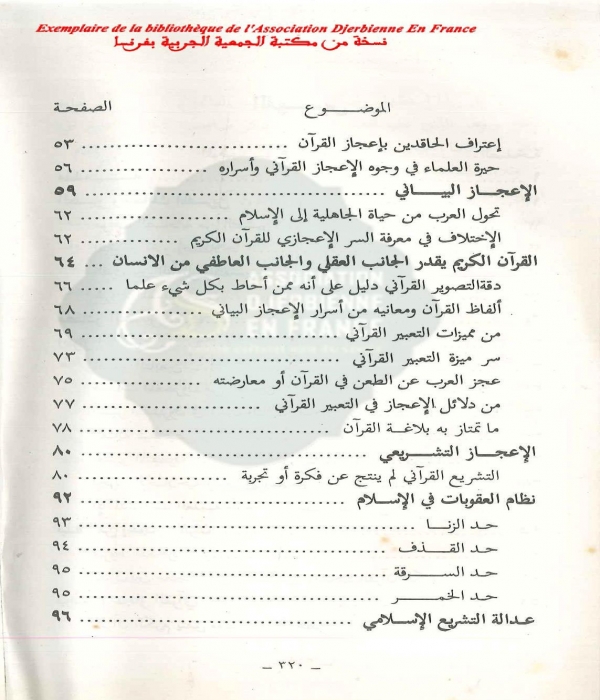 Exemplaire de la bibliothèque de l'Association Djerbienne En France
نسخة من مكتبة الجمعية الجربية بفرنسا
الموضـــوع الصفحة
إعتراف الحاقدين بإعجاز القرآن ............................ ٥٣
حيرة العلماء في وجوه الإعجاز القرآني وأسراره .................. ٥٦
الإعجاز البيـــاني ................................ ٥٩
تحول العرب من حياة الجاهلية إلى الإسلام .................. ٦٢
الإختلاف في معرفة السر الإعجازي للقرآن الكريم ............ ٦٢
القرآن الكريم يقدر الجانب العقلي والجانب العاطفي من الانسان ... ٦٤
دقةالتصوير القرآني دليل على أنه ممن أحاط بكل شيء علما ..... ٦٦
ألفاظ القرآن ومعانيه من أسرار الإعجاز البياني ................ ٦٨
من مميزات التعبير القرآني .......................... ٦٩
سر ميزة التعبير القرآني ............................ ٧٣
عجز العرب عن الطعن في القرآن أو معارضته ............... ٧٥
من دلائل الإعجاز في التعبير القرآني .................... ٧٧
ما تمتاز به بلاغة القرآن ............................ ٧٨
الإعجـــاز التشـــريعي ............................ ٨٠
التشريع القرآني لم ينتج عن فكرة أو تجربة ................ ٨٠
نظام العقوبات في الإســـلام ........................ ٩٢
حـد الزنـــا ................................ ٩٣
حـد القـــذف .............................. ٩٤
حـد الســـرقة .............................. ٩٥
حـد الخمـــر .............................. ٩٥
عـدالة التشريع الإســـلامي .......................... ٩٦
ASSOCIATION
DJERBIENNE
EN FRANCE
— ٣٢٠ —